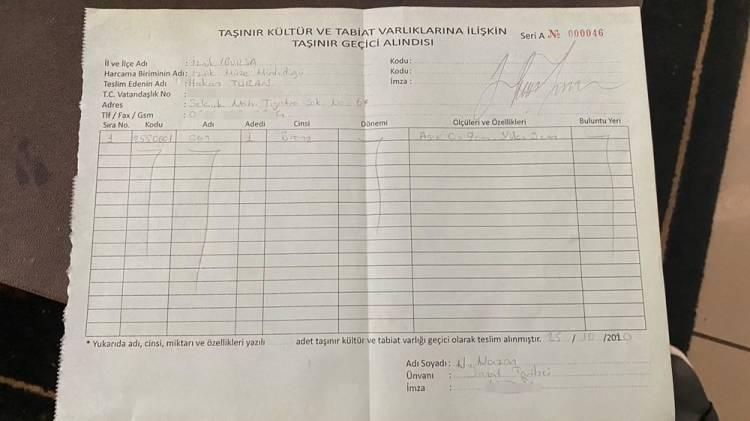 TAŞINIR KÜLTÜR VE TABİAT VARLIKLARINA İLİŞKİN
TAŞINIR GEÇİCİ ALINDISI
Seri A № 000046
İl ve İlçe Adı : İznik / BURSA
Harcama Biriminin Adı : İznik Müze Müdürlüğü
Teslim Edenin Adı : Hakan TURAN
T.C. Vatandaşlık No :
Adres : Selçuk Mah. Tiyatro Sok. No:
Tlf / Fax / Gsm :
Kodu :
Kodu :
İmza :
Sıra No. Kodu Adı Adedi Cinsi Dönemi Ölçüleri ve Özellikleri Buluntu Yeri
1 1
* Yukarıda adı, cinsi, miktarı ve özellikleri yazılı adet taşınır kültür ve tabiat varlığı geçici olarak teslim alınmıştır. 25 / 10 /20
Adı Soyadı : N.
Ünvanı : Sanat Tarihçi
İmza :